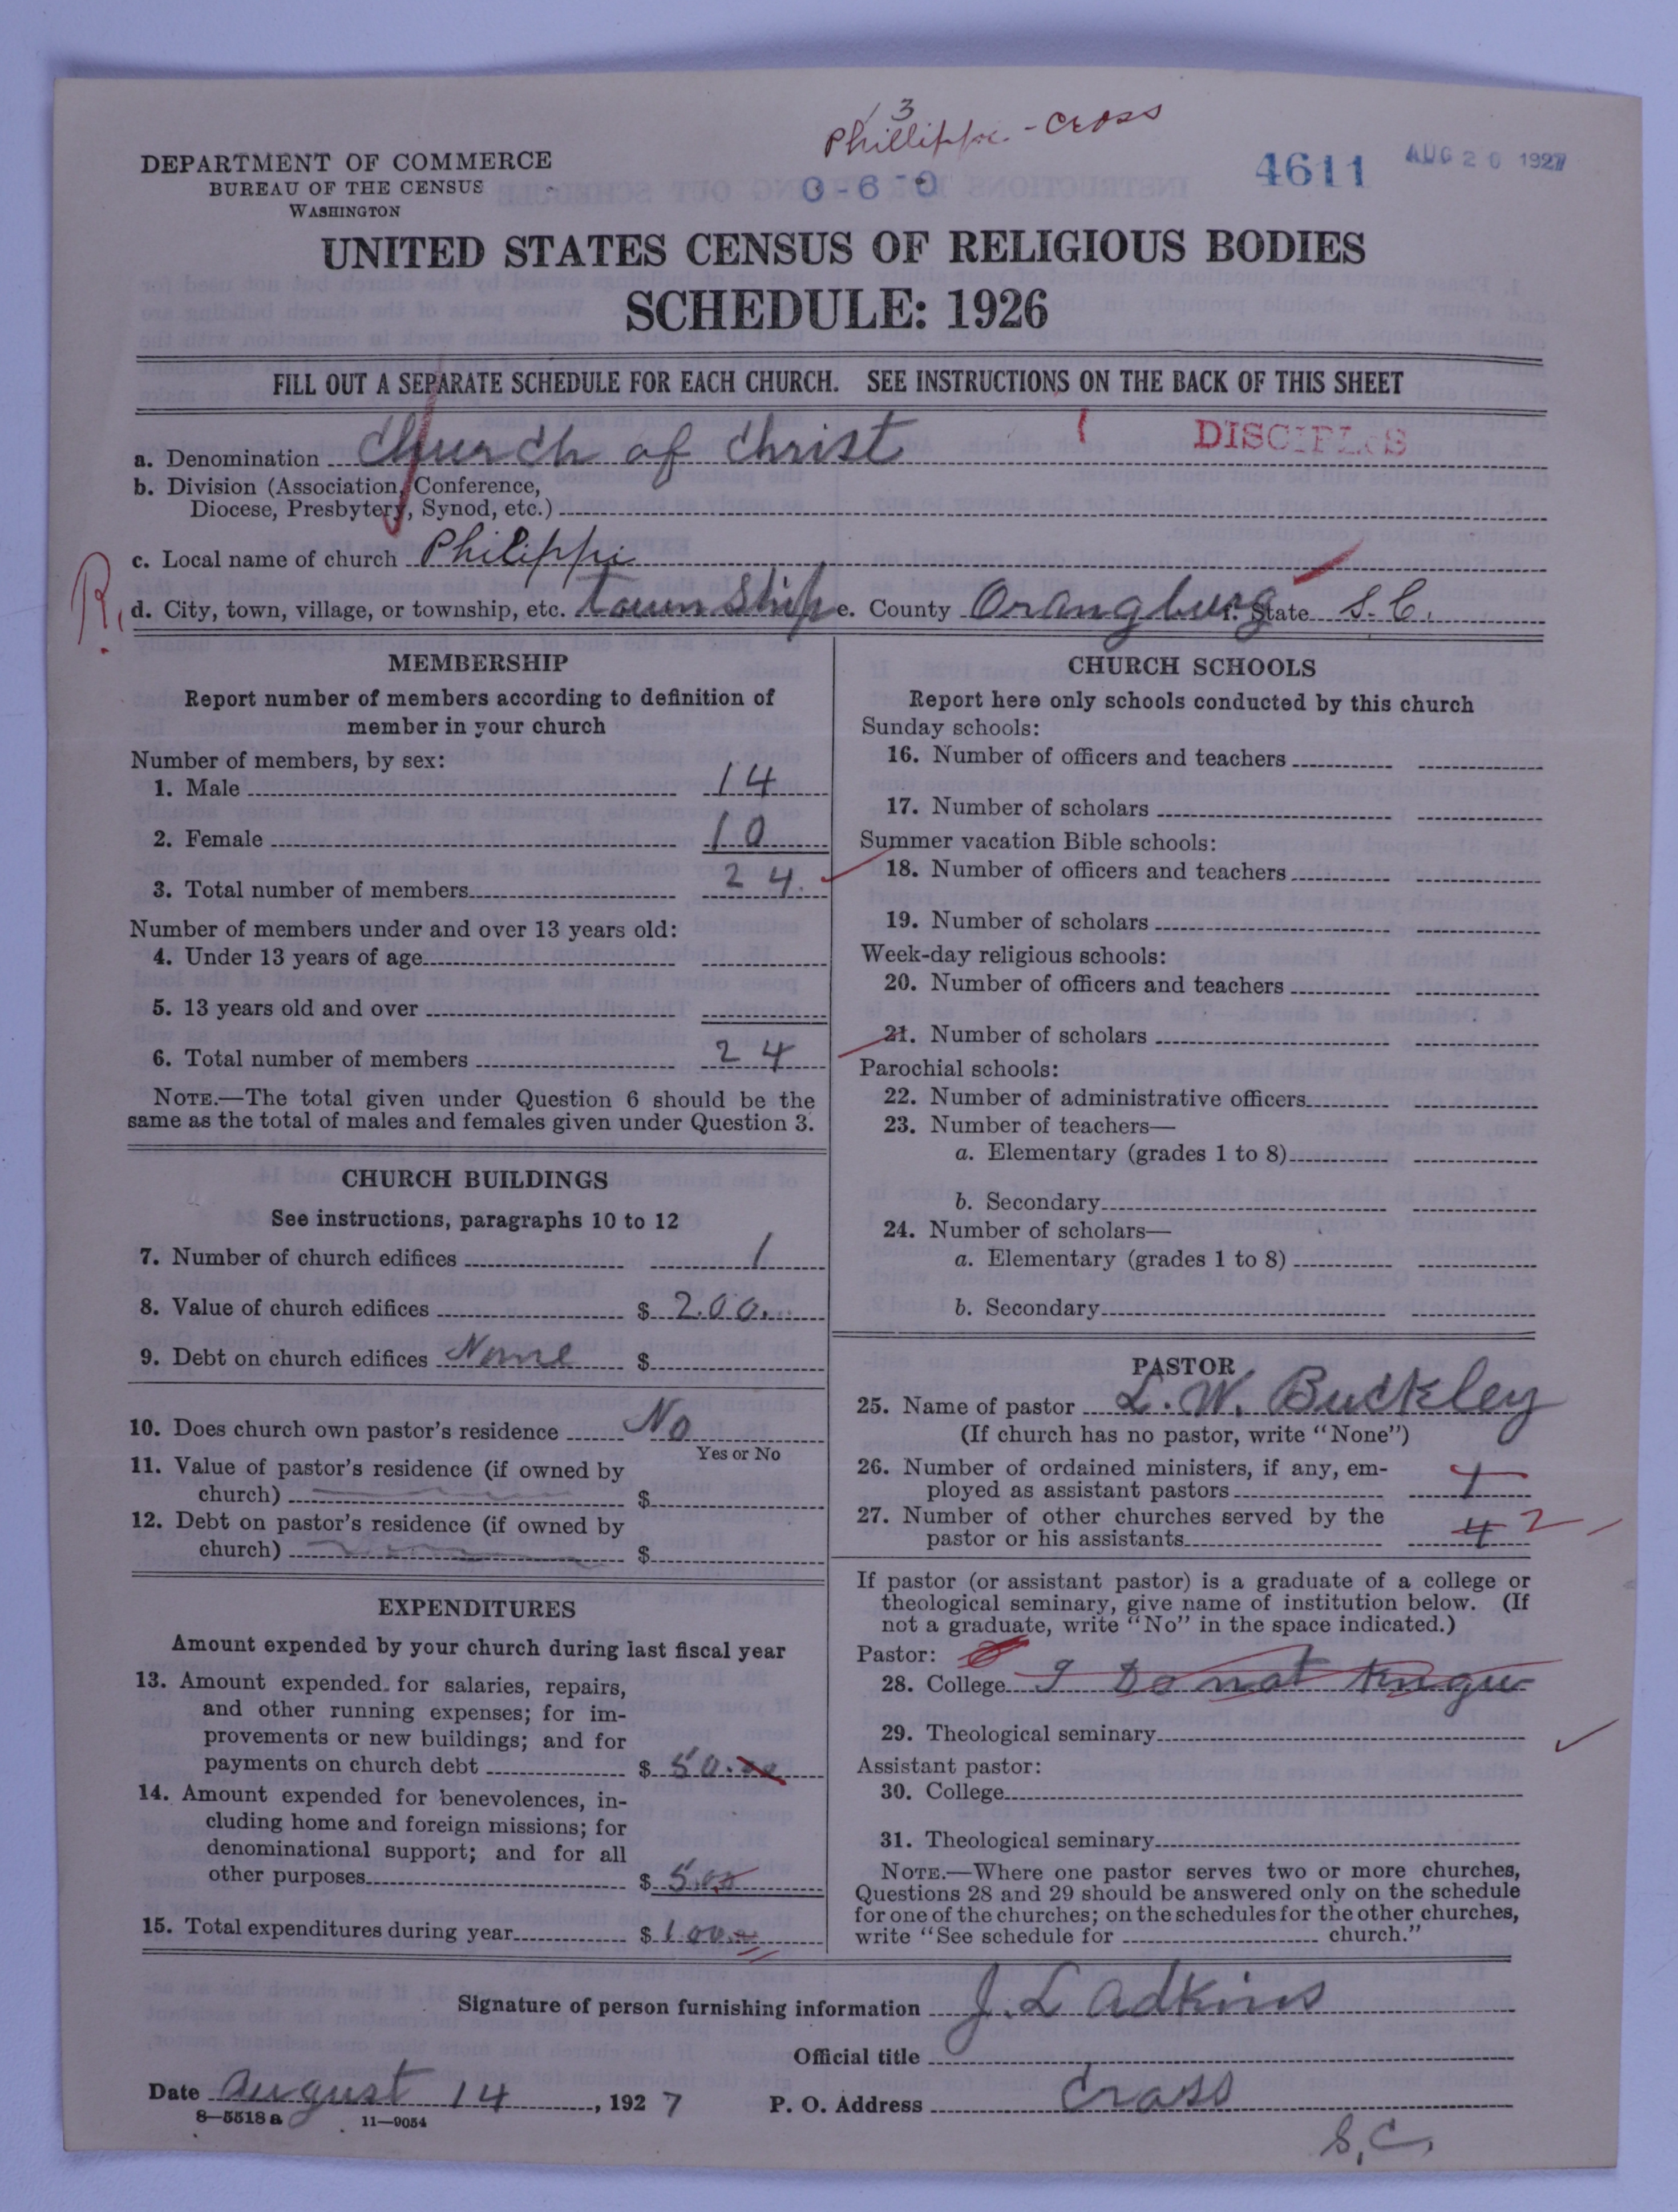 3
Phillippi - Cross
DEPARTMENT OF COMMERCE
BUREAU OF THE CENSUS
WASHINGTON
0-6-0
4611
AUG 20 1927
UNITED STATES CENSUS OF RELIGIOUS BODIES
SCHEDULE: 1926
FILL OUT A SEPARATE SCHEDULE FOR EACH CHURCH. SEE INSTRUCTIONS ON THE BACK OF THIS SHEET
a. Denomination Church of Christ DISCIPLES
b. Division (Association, Conference,
Diocese, Presbytery, Synod, etc.)
c. Local name of church Philippi
R. d. City, town, village, or township, etc. township e. County Orangburg f. State S.C.
MEMBERSHIP
Report number of members according to definition of
member in your church
Number of members, by sex:
1. Male 14
2. Female 10
3. Total number of members 24.
Number of members under and over 13 years old:
4. Under 13 years of age
5. 13 years old and over
6. Total number of members 24
NOTE.—The total given under Question 6 should be the
same as the total of males and females given under Question 3.
CHURCH BUILDINGS
See instructions, paragraphs 10 to 12
7. Number of church edifices 1
8. Value of church edifices $ 200.
9. Debt on church edifices None $
10. Does church own pastor's residence No
Yes or No
11. Value of pastor's residence (if owned by
church) $
12. Debt on pastor's residence (if owned by
church) $
EXPENDITURES
Amount expended by your church during last fiscal year
13. Amount expended for salaries, repairs,
and other running expenses; for im-
provements or new buildings; and for
payments on church debt $ 50.00
14. Amount expended for benevolences, in-
cluding home and foreign missions; for
denominational support; and for all
other purposes $ 5.00
15. Total expenditures during year $
CHURCH SCHOOLS
Report here only schools conducted by this church
Sunday schools:
16. Number of officers and teachers
17. Number of scholars
Summer vacation Bible schools:
18. Number of officers and teachers
19. Number of scholars
Week-day religious schools:
20. Number of officers and teachers
21. Number of scholars
Parochial schools:
22. Number of administrative officers
23. Number of teachers—
a. Elementary (grades 1 to 8)
b. Secondary
24. Number of scholars—
a. Elementary (grades 1 to 8)
b. Secondary
PASTOR
25. Name of pastor L. W. Buckley
(If church has no pastor, write "None")
26. Number of ordained ministers, if any, em-
ployed as assistant pastors 1
27. Number of other churches served by the
pastor or his assistants 4 2
If pastor (or assistant pastor) is a graduate of a college or
theological seminary, give name of institution below. (If
not a graduate, write "No" in the space indicated.)
Pastor:
28. College I do not know
29. Theological seminary
Assistant pastor:
30. College
31. Theological seminary
NOTE.—Where one pastor serves two or more churches,
Questions 28 and 29 should be answered only on the schedule
for one of the churches; on the schedules for the other churches,
write "See schedule for church."
Signature of person furnishing information J. L Adkins
Official title
Date August 14, 1927 P. O. Address Cross
8—5518 a 11—9054
S.C.